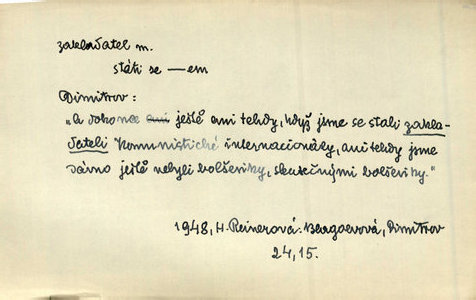 zakladatel m.
státi se —em
Dimitrov:
„A dokonce ani ještě ani tehdy, když jsme se stali zakla-
dateli Komunistické internacionály, ani tehdy jsme
dávno ještě nebyli bolševiky, skutečnými bolševiky.“
1948, H. Reinerová: Blagoevová, Dimitrov
24, 15.